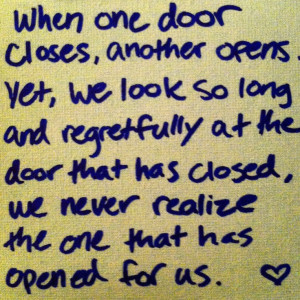 When one door
closes, another opens.
Yet, we look so long
and regretfully at the
door that has closed,
we never realize
the one that has
opened for us. ♡